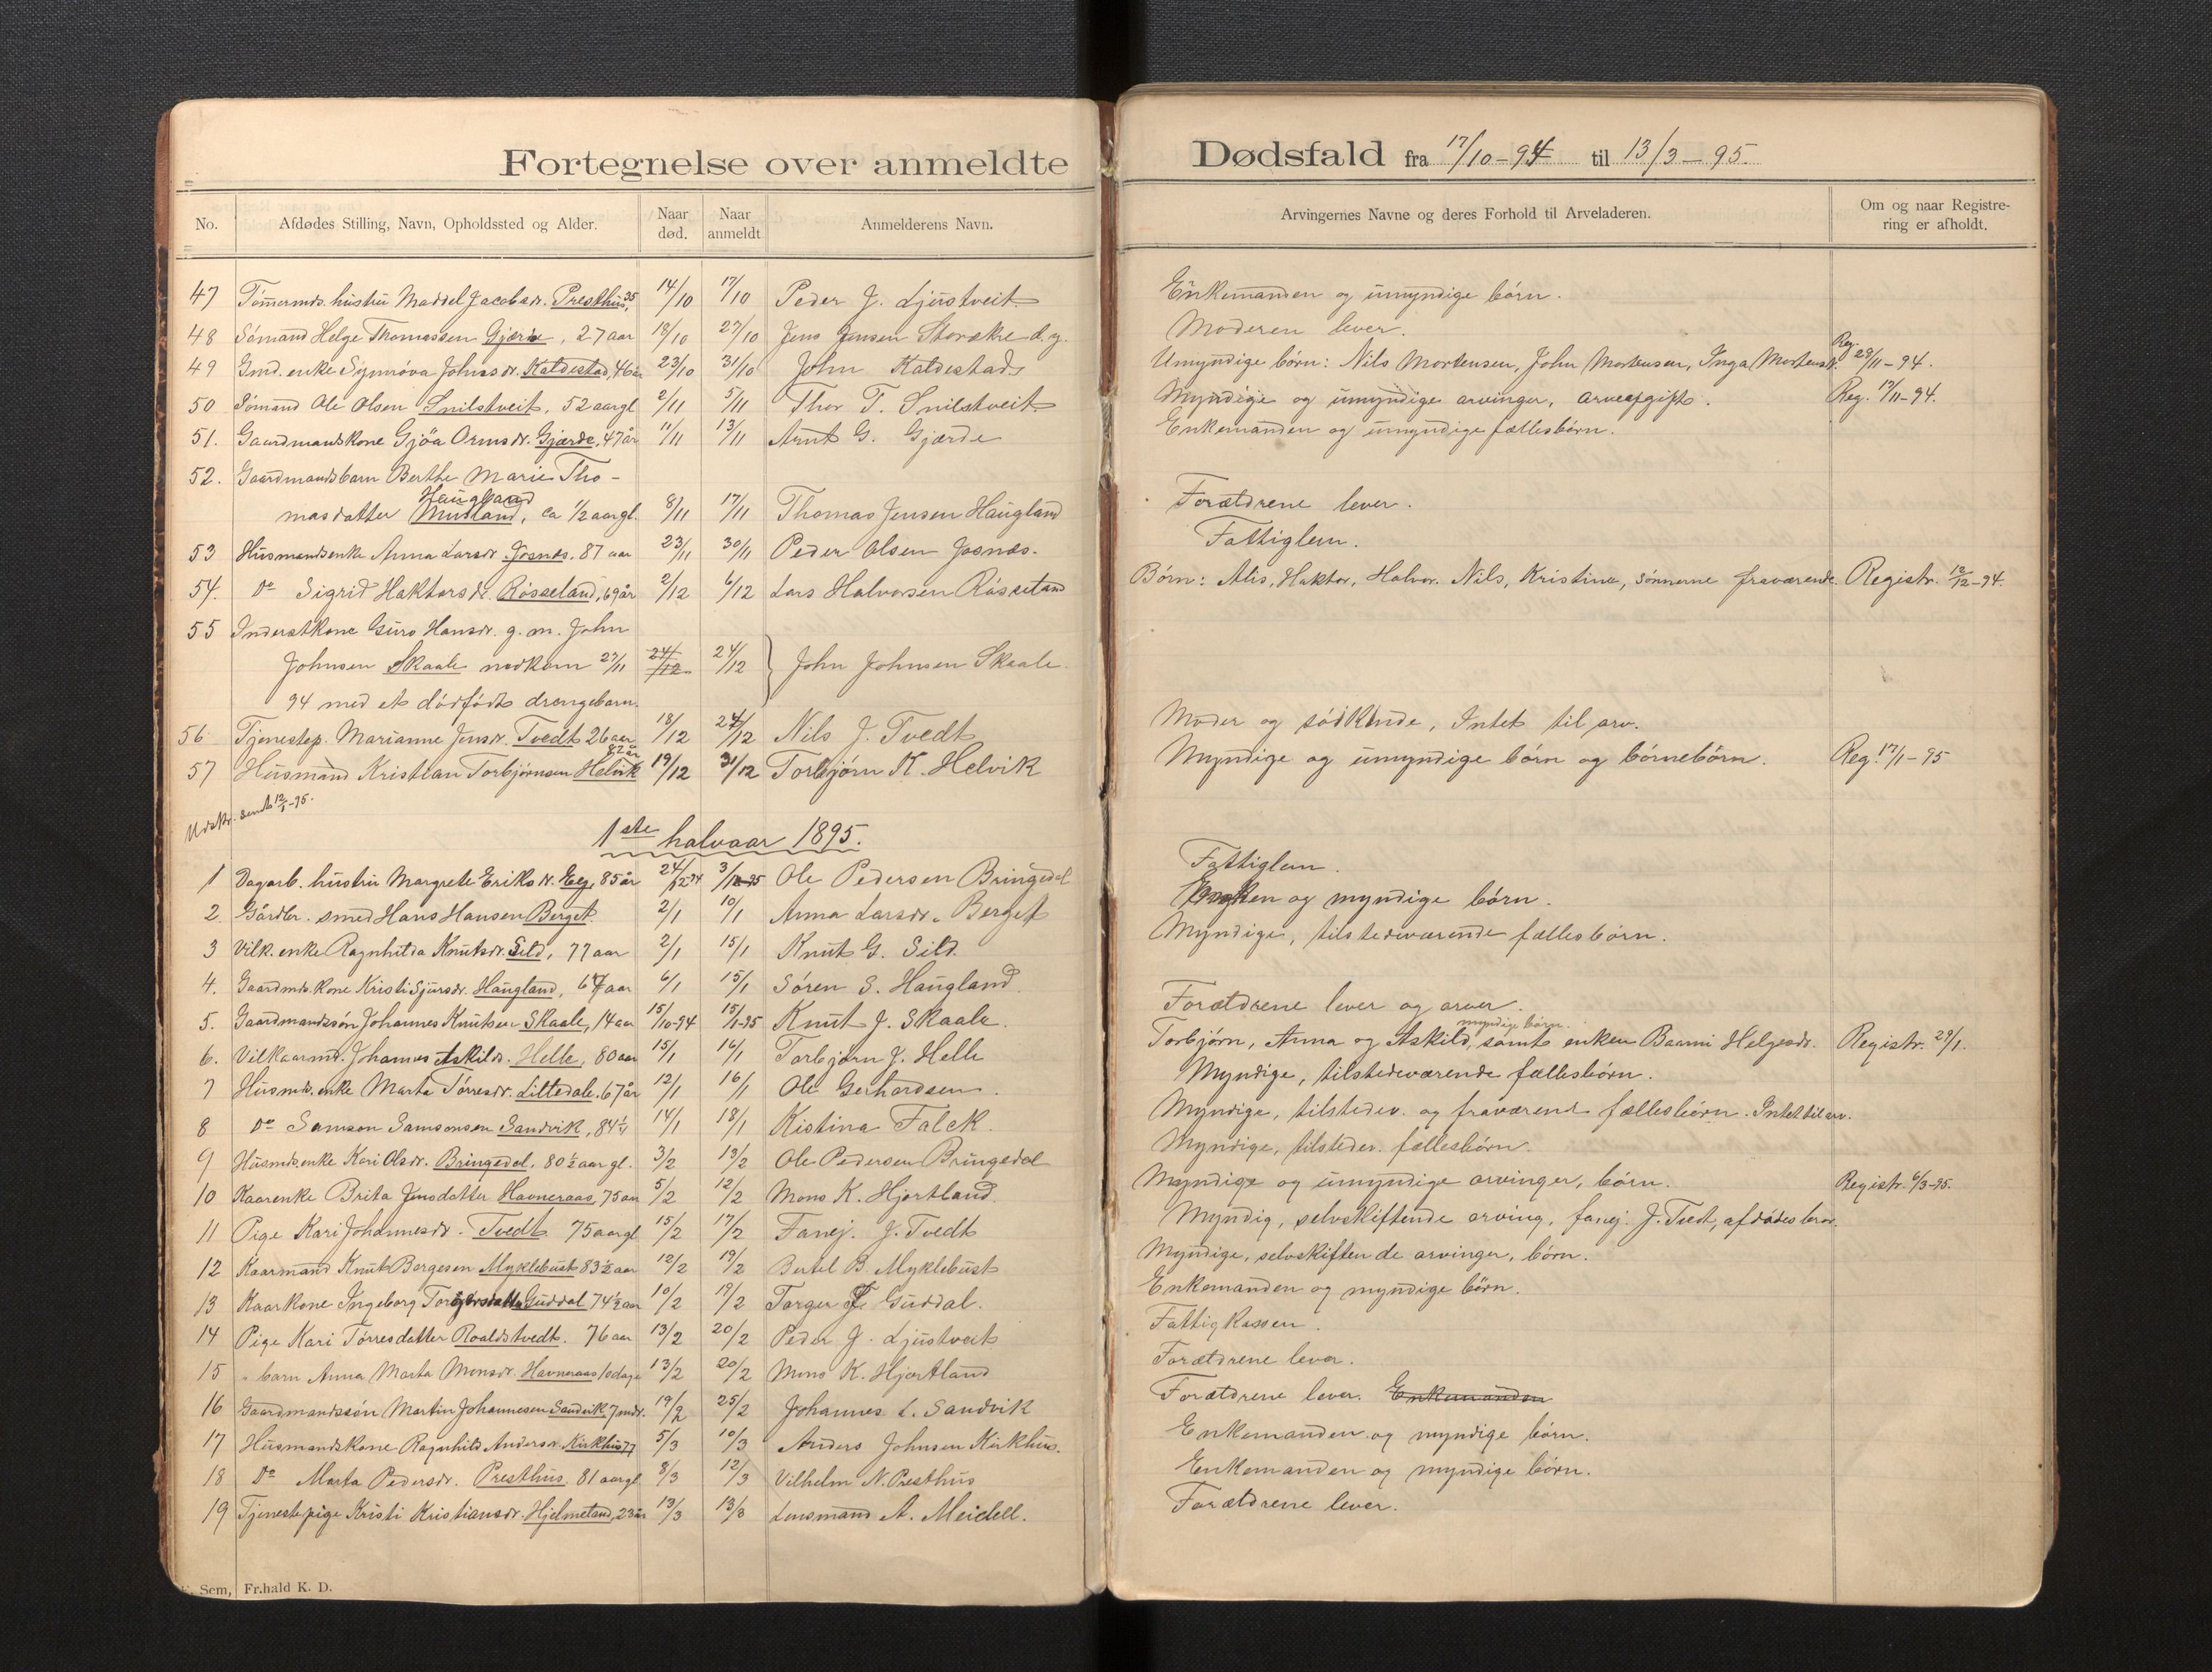 Fortegnelse over anmeldte
No. Afdødes Stilling, Navn, Opholdssted og Alder. Naar død. Naar anmeldt Anmelderens Navn.
47 Tømermds. hustru Maddel Jacobsdr. Presthus, 35 14/10 17/10 Peder J. Ljustveit
48 Sømand Helge Thomassen Gjærde, 27 aar 18/10 27/10 Jens Jensen Storækre d.y.
49 Gmd. enke Synnøva Johnsdr. Kaldestad, 46 år 23/10 31/10 John Kaldestad
50 Sømand Ole Olsen Snilstveit, 52 aar gl. 2/11 5/11 Thor T. Snilstveit
51. Gaardmandskone Gjøa Ormsdr. Gjærde, 47 år 11/11 13/11 Arnt G. Gjærde
52. Gaardmandsbarn Berthe Marie Tho-
Haugland
masdatter Musland, ca 1/2 aar gl. 8/11 17/11 Thomas Jensen Haugland
53 Husmandsenke Anna Larsdr. Josnæs. 87 aar 23/11 30/11 Peder Olsen Josnæs.
54. Do Sigrid Haktorsdr. Røsseland, 69 år 2/12 6/12 Lars Halvorsen Røsseland
55 Inderstkone Guro Hansdr. g. m. John
Johnsen Skaale nedkom 27/11 24/12 24/12 John Johnsen Skaale
94 med et dødfødt drengebarn.
56. Tjenestep. Marianne Jensdr. Tvedt 26 aar 18/12 24/12 Nils J. Tvedt
82 år
57 Husmand Kristian Torbjørnsen Helvik 19/12 31/12 Torbjørn K. Helvik
Udskr. sendt 12/1-95.
1ste halvaar 1895.
1 Dagarb. hustru Margrete Eriksdr. Eeg, 85 år 24/12 94 3/1 95 Ole Pedersen Bringedal
2. Gårdbr. smed Hans Hansen Berget. 2/1 10/1 Anna Larsdr. Berget
3 Vilk. enke Ragnhilda Knutsdr. Sild, 77 aar 2/1 15/1 Knut G. Sild.
4. Gaardmds. kone Kristi Sjursdr. Haugland, 67 aar 6/1 15/1 Søren S. Haugland
5. Gaardmandssøn Johannes Knutsen Skaale, 14 aar 15/10-94 15/1-95 Knut J. Skaale.
6. Vilkaarmd. Johannes Askilds. Helle, 80 aar 15/1 16/1 Torbjørn J. Helle
7 Husmds. enke Marta Tørresdr. Littedale. 67 år 12/1 16/1 Ole Gerhardsen.
8 Do Samson Samsonsen Sandvik, 84 1/4 14/1 18/1 Kistina Falck.
9 Husmdsenke Kari Olsdr. Bringedal, 80 1/2 aar gl. 3/2 13/2 Ole Pedersen Bringedal
10 Kaarenke Brita Jensdatter Havneraas, 75 aar 5/2 12/2 Mons K. Hjortland.
11 Pige Kari Johannesdr. Tvedt 75 aar gl 15/2 17/2 Fanej. J. Tvedt
12 Kaarmand Knut Børgesen Myklebust 83 1/2 aar 12/2 19/2 Bertel B. Myklebust
13 Kaarkone Ingeborg Torgersdatter Guddal 74 1/2 aar 10/2 19/2 Torger J. Guddal.
14 Pige Kari Tørresdatter Roaldstvedt. 76 aar 13/2 20/2 Peder J. Ljustveit
15 " barn Anna Marta Monsdr. Havneraas 10 dage 13/2 20/2 Mons K. Hjortland
16 Gaardmandssøn Martin Johannesen Sandvik 7 mdr. 19/2 25/2 Johannes L. Sandvik
17 Husmandskone Ragnhild Andersdr. Kirkhus 77 5/3 10/3 Anders Johnsen Kirkhus.
18 Do Marta Pedersdr. Presthus 81 aar gl 8/3 12/3 Vilhelm N. Presthus
19 Tjenestepige Kristi Kristiansdr. Hjelmeland, 23 år 13/3 13/3 Lensmand A. Meidell.
Sem, Fr.hald K. D.
Dødsfald fra 17/10-94 til 13/3-95.
Arvingernes Navne og deres Forhold til Arveladeren. Om og naar Registrering er afholdt.
Enkemanden og umyndige børn.
Moderen lever.
Umyndige børn: Nils Mortensen, John Mortensen, Inga Mortensd. Reg. 29/11-94.
Myndige og umyndige arvinger, arveafgift. Reg. 17/11-94.
Enkemanden og umyndige fællesbørn.
Forældrene lever.
Fattiglem.
Børn: Alis, Haktor, Halvor, Nils, Kristine, sønnerne fraværende. Registr. 12/12-94.
Moder og sødskende, Intet til arv.
Myndige og umyndige børn og børnebørn. Reg. 17/1-95
Fattiglem.
Enken og myndige børn.
Myndige, tilstedeværende fællesbørn.
Forældrene lever og arver.
myndige børn.
Torbjørn, Anna og Askild, samt enken Baarni Helgesdr. Registr. 29/1.
Myndige, tilstedeværende fællesbørn.
Myndige, tilstedev. og fraværend fællesbørn. Intet til arv.
Myndige, tilstedev. fællesbørn.
Myndige og umyndige arvinger, børn. Registr. 6/3-95.
Myndig, selvskiftende arving, fanej. J. Tvedt, afdødes bror.
Myndige, selvskiftende arvinger, børn.
Enkemanden og myndige børn.
Fattigkassen.
Forældrene lever.
Forældrene lever. Enkemanden
Enkemanden og myndige børn.
Enkemanden og myndige børn.
Forældrene lever.